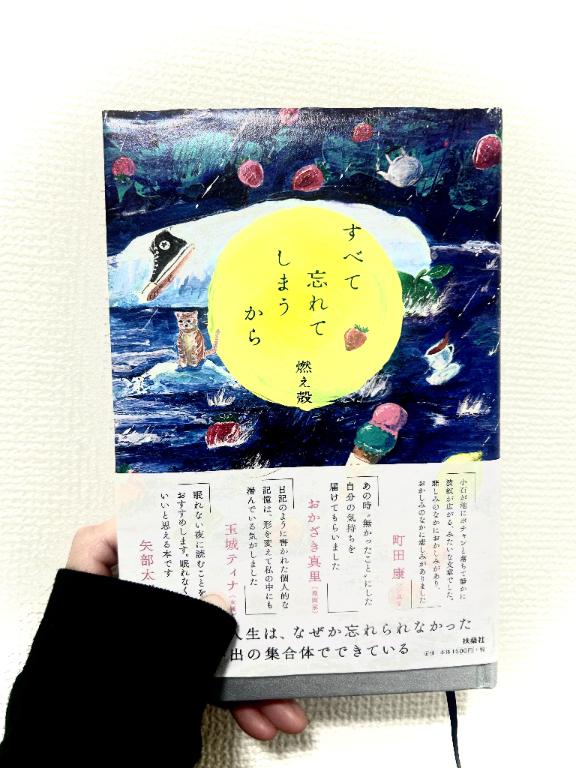 すべて
忘れて
しまう
から
燃え殻
小石が池にポチャンと落ちて静かに
波紋が広がる、みたいな文章でした。
悲しみのなかにおかしみがあり、
おかしみのなかに悲しみがありました
町田 康
あの時〝無かったこと〟にした
自分の気持ちを
届けてもらいました
おかざき真里(漫画家)
日記のように書かれた個人的な
記憶は、形を変えて私の中にも
潜んでいる気がしました
玉城ティナ
眠れない夜に読むことを
おすすめします。眠れなく
いいと思える本です
矢部太
人生は、なぜか忘れられなかった
出の集合体でできている
扶桑社
定価 本体1500円+税